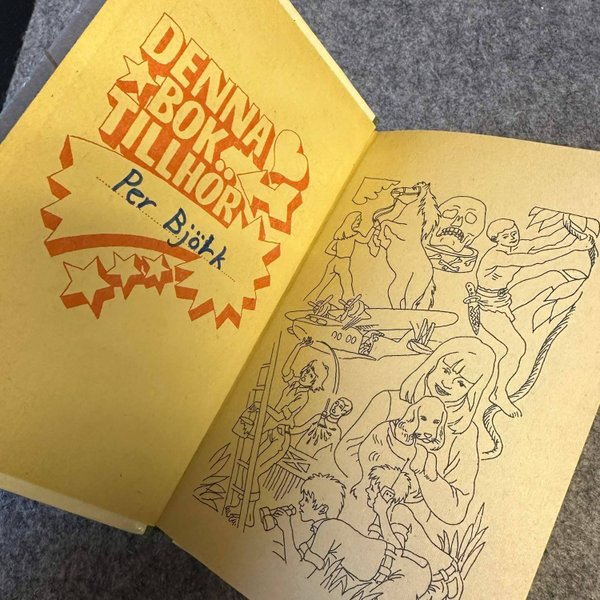 DENNA
BOK
TILLHÖR
Per Björk